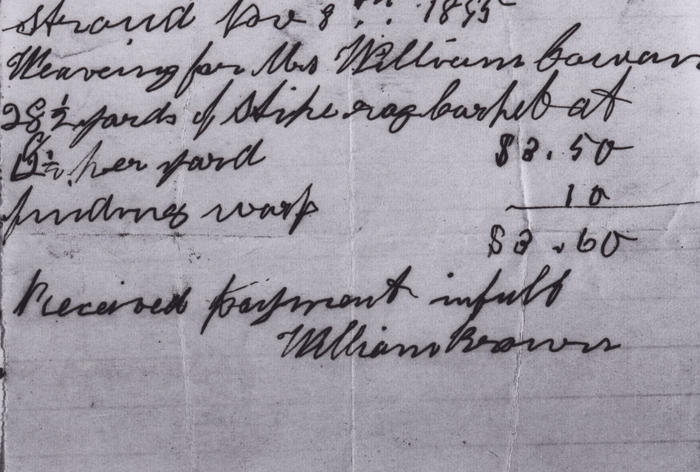 Strand Nov 8th 1895
Weaving for Mrs William Cowan
28 1/2 yards of stripe rag carpet at
12 1/2 per yard $3.50
finding warp 10
$3.60
Received payment in full
William Brown